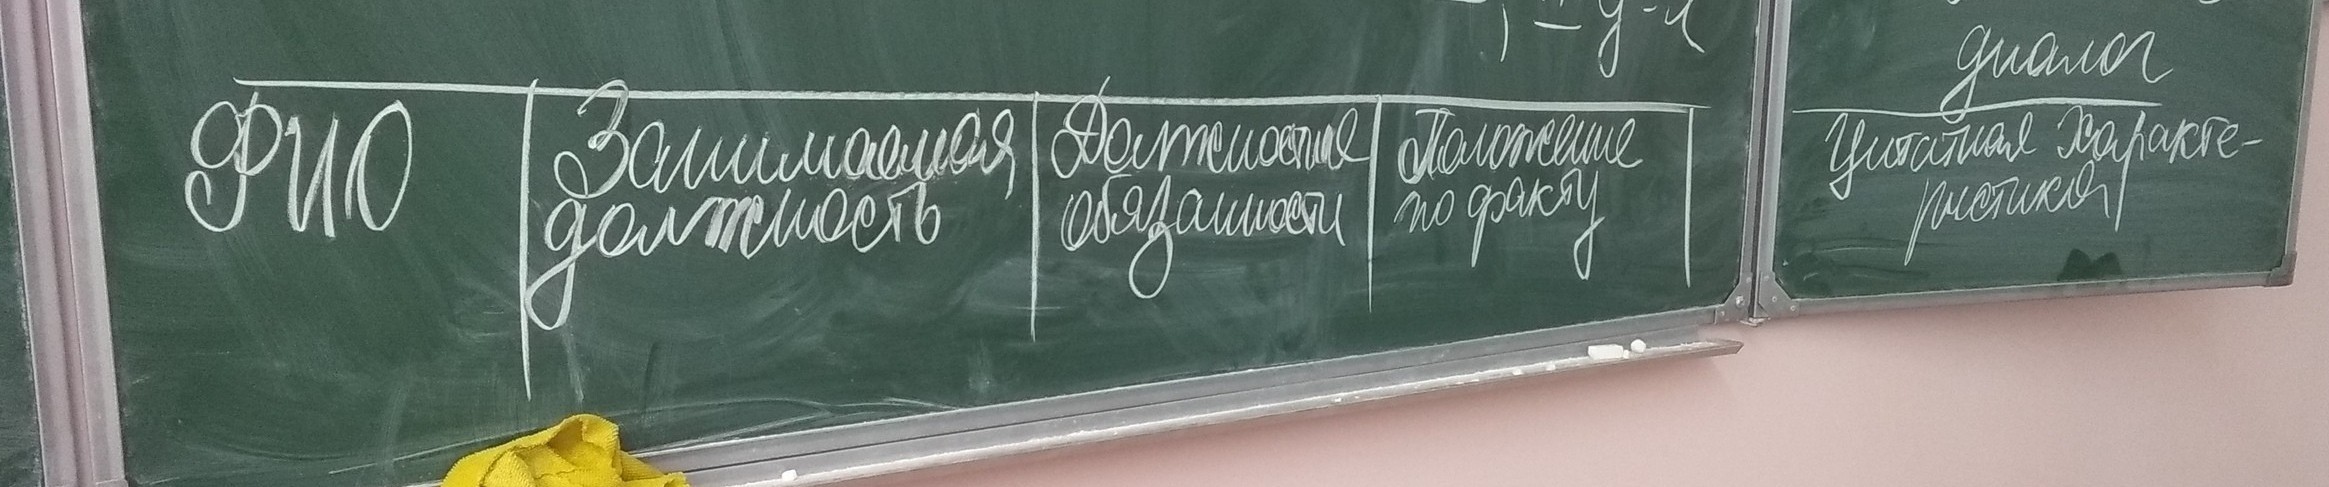 ФИО
Занимаемая
должность
Должностные
обязанности
Положение
по факту
диалог
Цитатная характе-
ристика